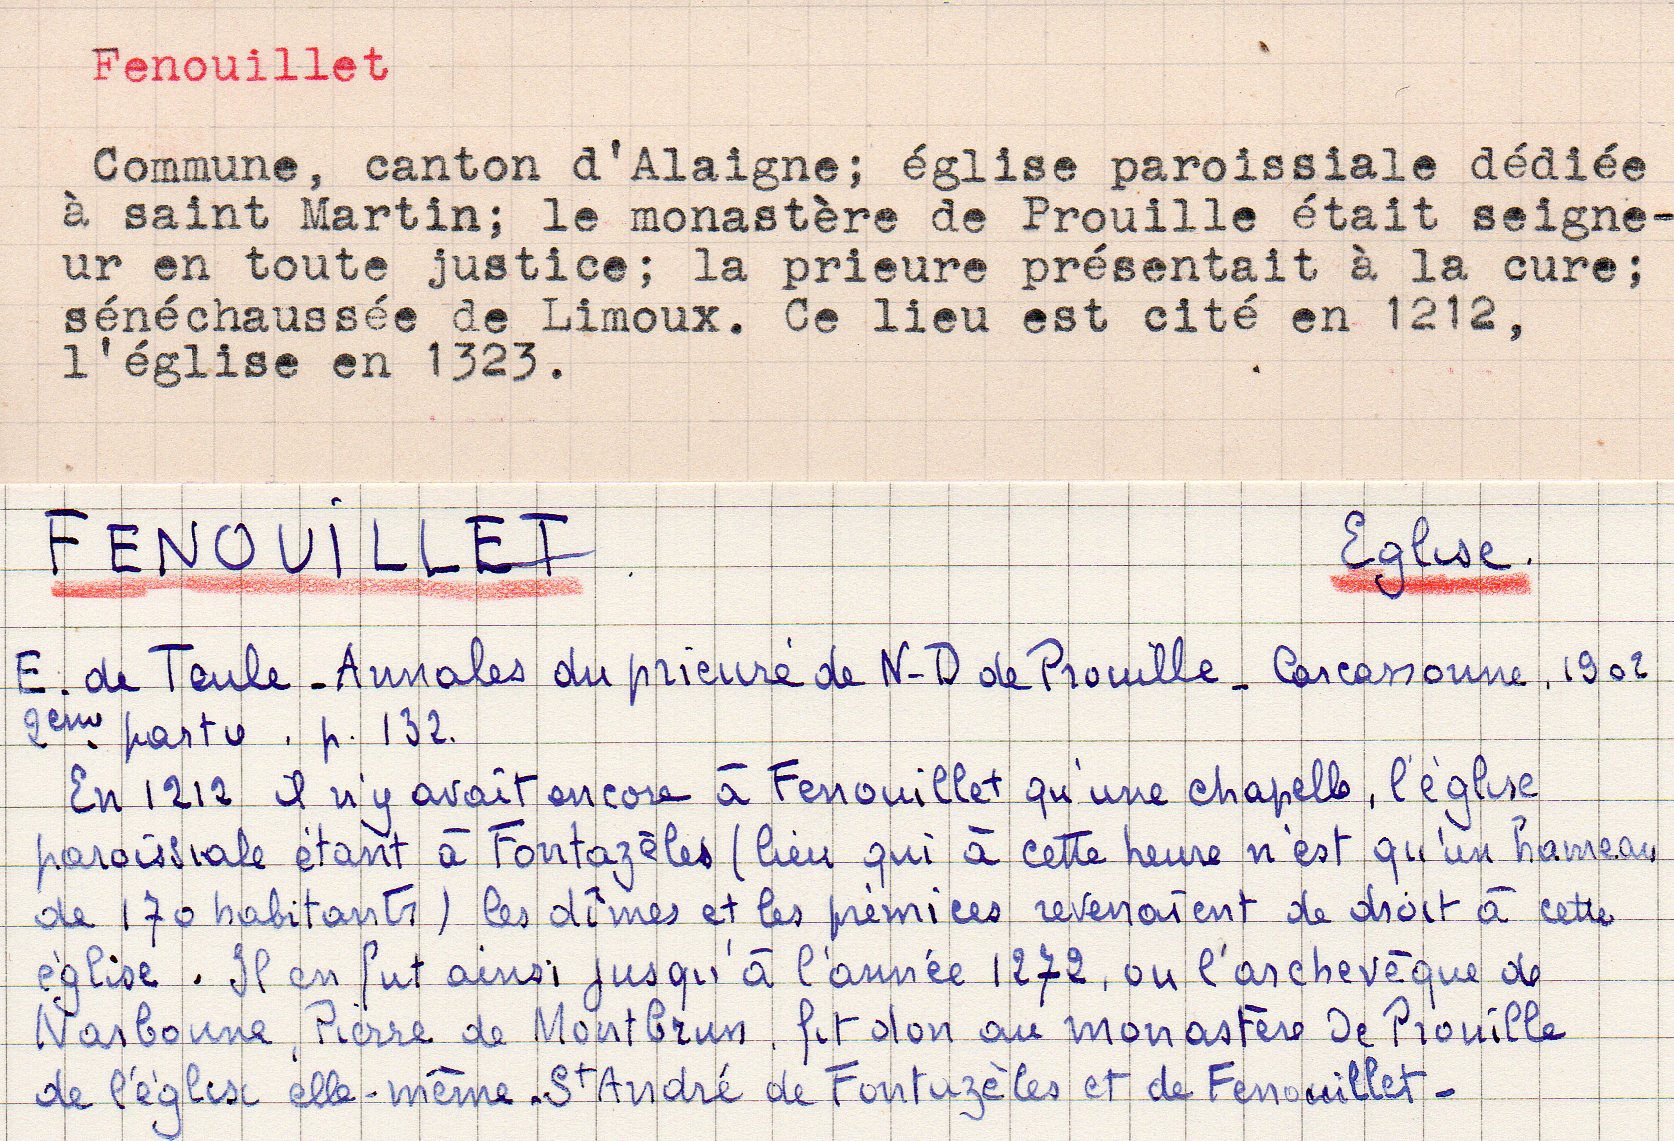 Fenouillet
Commune, canton d'Alaigne; église paroissiale dédiée
à saint Martin; le monastère de Prouille était seigne-
ur en toute justice; la prieure présentait à la cure;
sénéchaussée de Limoux. Ce lieu est cité en 1212,
l'église en 1323.
FENOUILLET. Eglise.
E. de Teule - Annales du prieuré de N-D de Prouille - Carcassonne, 1902
2ème partie, p. 132.
En 1212 il n'y avait encore à Fenouillet qu'une chapelle, l'église
paroissiale étant à Fontazèles (lieu qui à cette heure n'est qu'un hameau
de 170 habitants) les dîmes et les prémices revenaient de droit à cette
église. Il en fut ainsi jusqu'à l'année 1272, ou l'archevêque de
Narbonne, Pierre de Montbrun, fit don au monastère de Prouille
de l'église elle-même St André de Fontazèles et de Fenouillet -